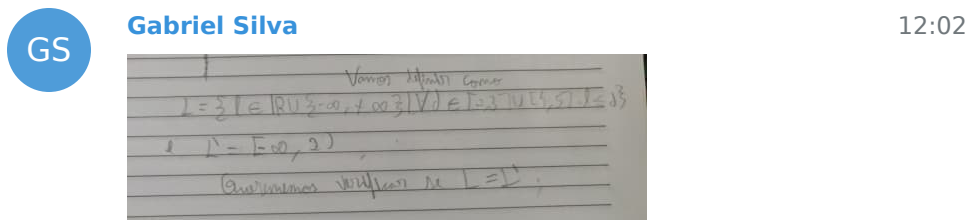 GS
Gabriel Silva
12:02
Vamos definir como
L = { l ∈ ℝ∪{-∞, +∞} | ∀ d ∈ l ≤ d}
e L' = [-∞, 2)
verificar se L = L'.